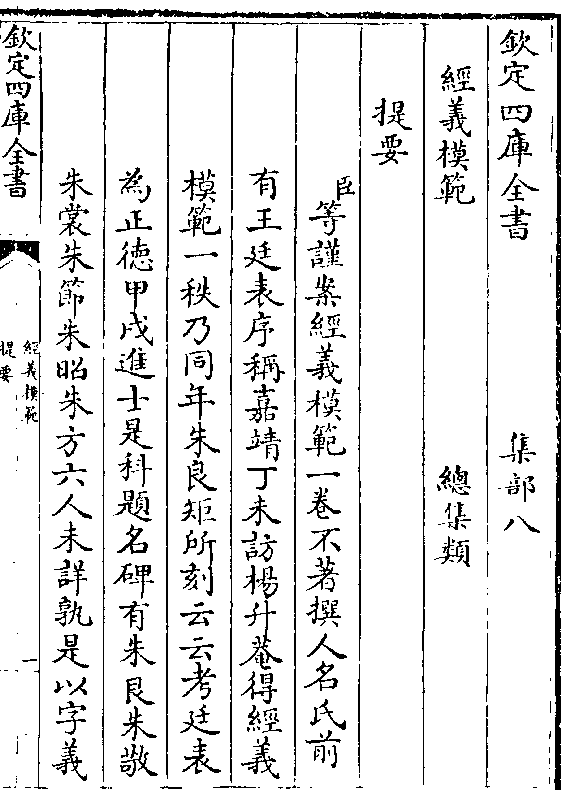 欽定四庫全書 集部八
經義模範 總集類
提要
臣等謹案經義模範一卷不著撰人名氏前
有王廷表序稱嘉靖丁未訪楊升菴得經義
模範一秩乃同年朱良矩所刻云云考廷表
為正德甲戌進士是科題名碑有朱良朱敬
朱裳朱節朱昭朱方六人未詳孰是以字義
欽定四庫全書
經義模範
提要
一